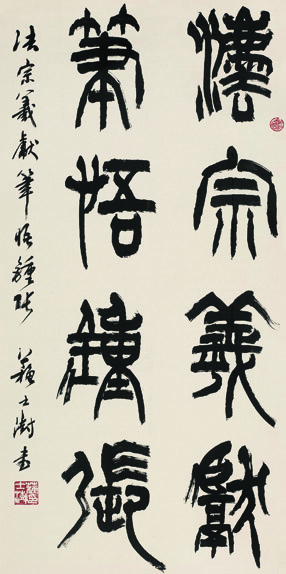 灋宗羲獻
筆悟鍾張
法宗羲獻筆悟鍾張 蘇士澍書